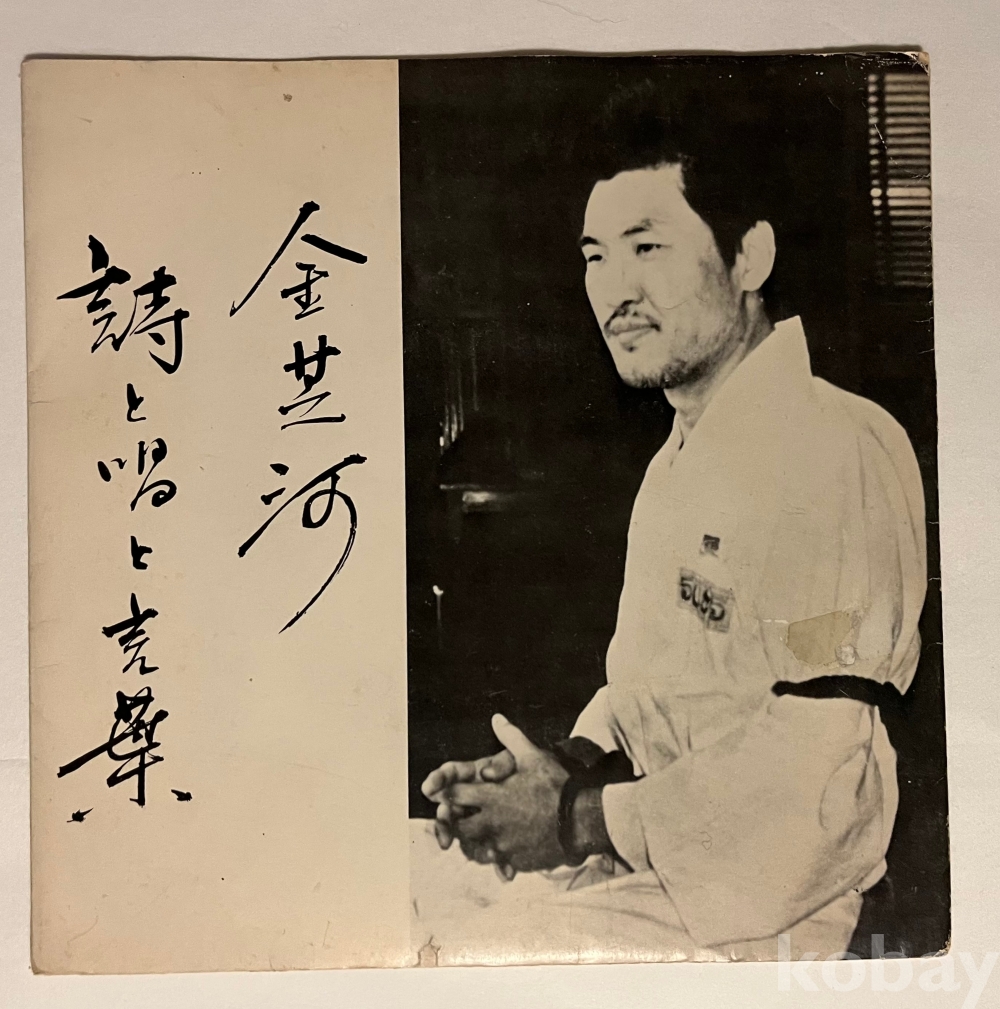 金芝河
詩と唱と言葉
5085
kobay